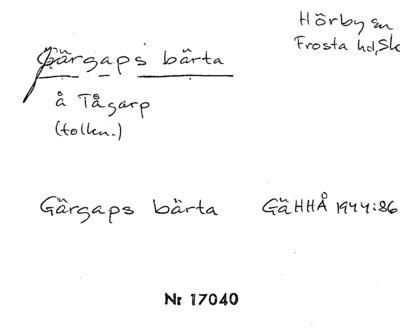 Hörby sn
Frosta hd, Sk
Gärgaps bärta
å Tågarp
(tolkn.)
Gärgaps bärta GäHHÅ 1944:86
Nr 17040